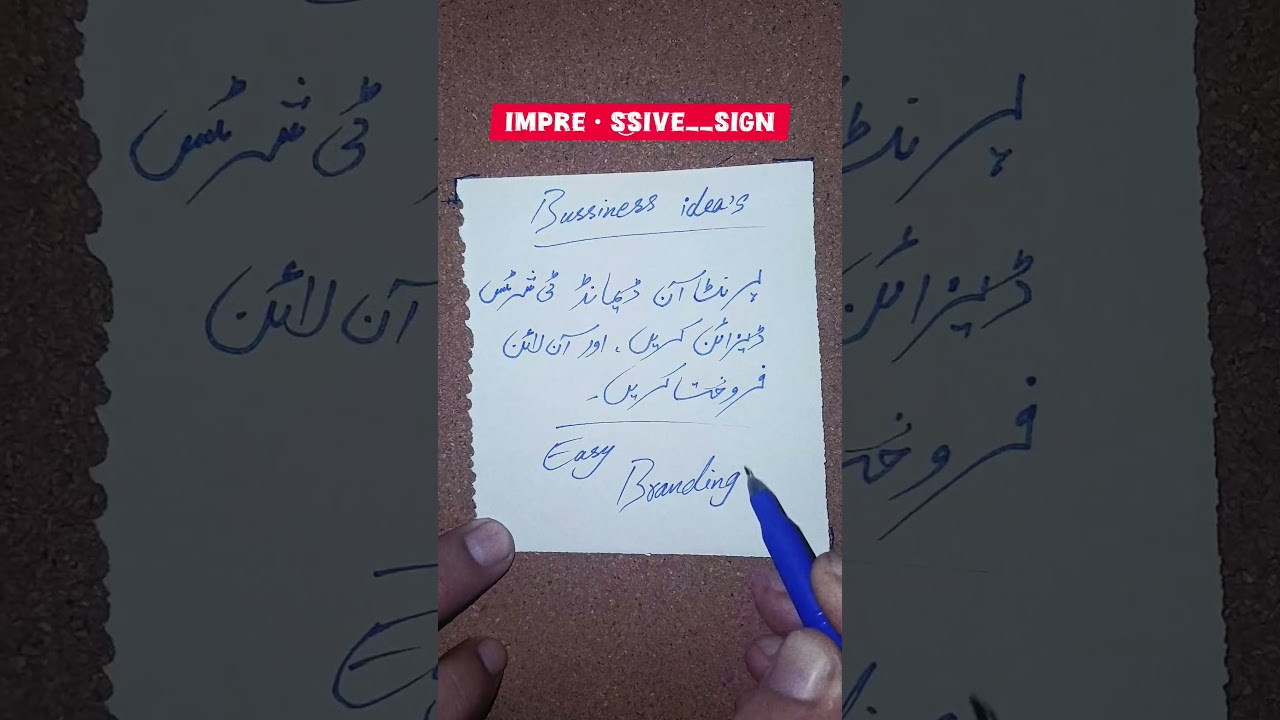 IMPRE · SSIVE__SIGN
Bussiness idea's
پرنٹ آن ڈیمانڈ ٹی شرٹس
ڈیزائن کریں۔ اور آن لائن
فروخت کریں۔
Easy
Branding